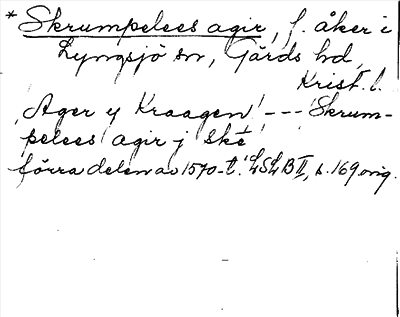 * Skrumpelees agir, f. åker i
Lyngsjö sn, Gärds hd,
Krist. l.
"Ager y Kraagen" --- Skrum-
pelees agir j ske
förra delen av 1570-t. LSLB II, s. 169 orig.